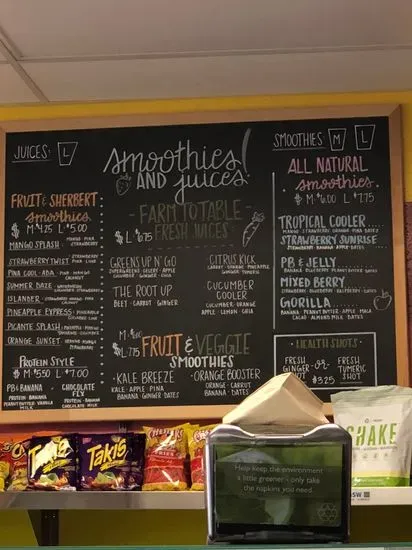 JUICES: L
Smoothies!
AND juices
SMOOTHIES M L
FRUIT & SHERBET
smoothies
$ M 4.25 L 5.00
MANGO SPLASH - MANGO PINA
STRAWBERRY
STRAWBERRY TWIST
PINA COOL-ADA
SUMMER DAZE
ISLANDER
PINEAPPLE EXPRESS
PICANTE SPLASH
ORANGE SUNSET
PROTEIN STYLE
$ M 5.50 L 7.00
PB & BANANA
PROTEIN BANANA
PEANUTBUTTER VANILLA
MILK
CHOCOLATE
FIX
PROTEIN BANANA
CHOCOLATE MILK
- FARM TO TABLE -
$ L 6.75 FRESH JUICES
GREENS UP N' GO
SUPERGREENS CELERY APPLE
CUCUMBER GINGER
THE ROOT UP
BEET CARROT GINGER
CITRUS KICK
CARROT ORANGE PINEAPPLE
GINGER TUMERIC
CUCUMBER
COOLER
CUCUMBER ORANGE
APPLE LEMON CHIA
$ M 6.00
L 7.75 FRUIT & VEGGIE
SMOOTHIES
- KALE BREEZE
KALE APPLE PINA
BANANA GINGER DATES
- ORANGE BOOSTER
ORANGE CARROT
BANANA DATES
ALL NATURAL
smoothies
$ M 6.00 L 7.75
TROPICAL COOLER
MANGO STRAWBERRY ORANGE PINA DATES
STRAWBERRY SUNRISE
STRAWBERRY BANANA APPLE DATES
PB & JELLY
BANANA BLUEBERRY PEANUTBUTTER DATES
MIXED BERRY
STRAWBERRY BLUEBERRY RASPBERRY DATES
GORILLA
BANANA PEANUTBUTTER APPLE MACA
CACAO ALMOND MILK DATES
- HEALTH SHOTS -
FRESH
GINGER
SHOT
OR
$3.25
FRESH
TUMERIC
SHOT
Takis
Takis
CHEETOS
FRIES
SHAKE
Help keep the environment
a little greener - only take
the napkins you need.